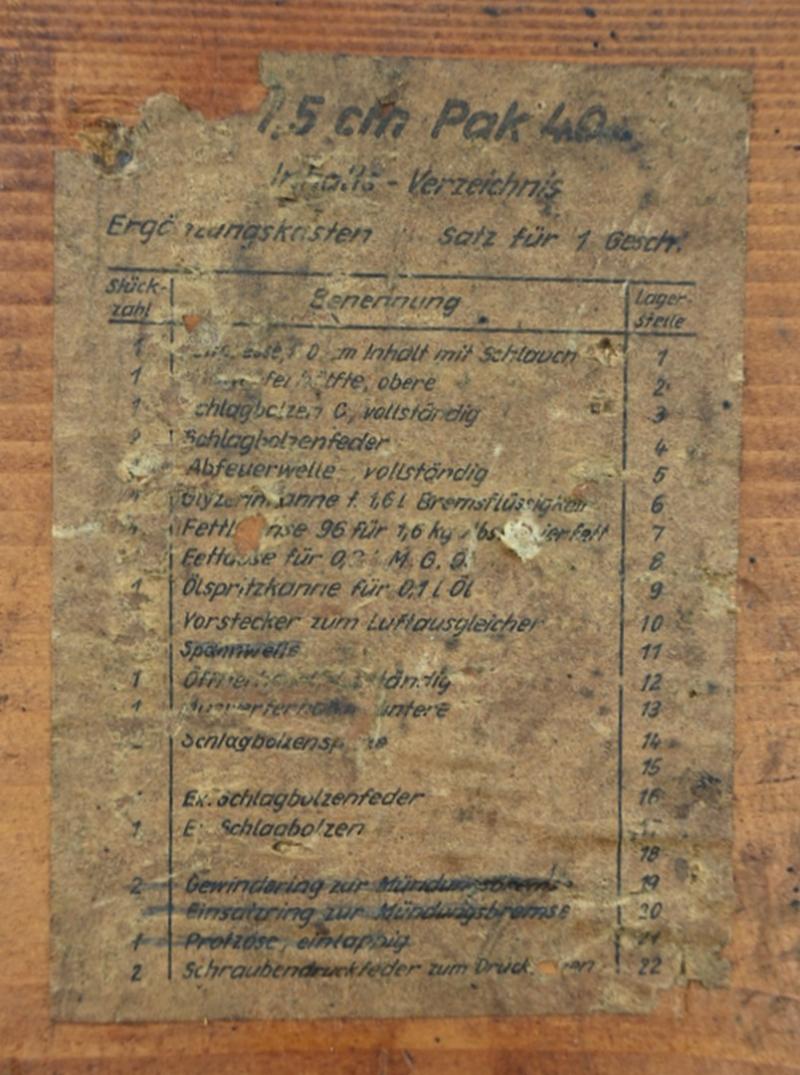 7,5 cm Pak 40
Inhalts-Verzeichnis
Ergänzungskasten satz für 1 Gesch.
Stück-zahl Benennung Lager-stelle
1 Inhalt mit Schlauch 1
1 obere 2
1 Schlagbolzen C, vollständig 3
Schlagbolzenfeder 4
Abfeuerwelle vollständig 5
Glyzerinkanne f. 1,6 l Bremsflüssigkeit 6
96 für 1,6 kg 7
für M. G. 8
1 Ölspritzkanne für 0,1 l Öl 9
Vorstecker zum Luftausgleicher 10
Spannwelle 11
1 12
1 untere 13
Schlagbolzen 14
15
Ex. Schlagbolzenfeder 16
1 Schlagbolzen 17
18
2 Gewindering zur Mündungsbremse 19
Einsatzring zur Mündungsbremse 20
1 Protzöse, einlappig 21
2 Schraubendruckfeder zum 22